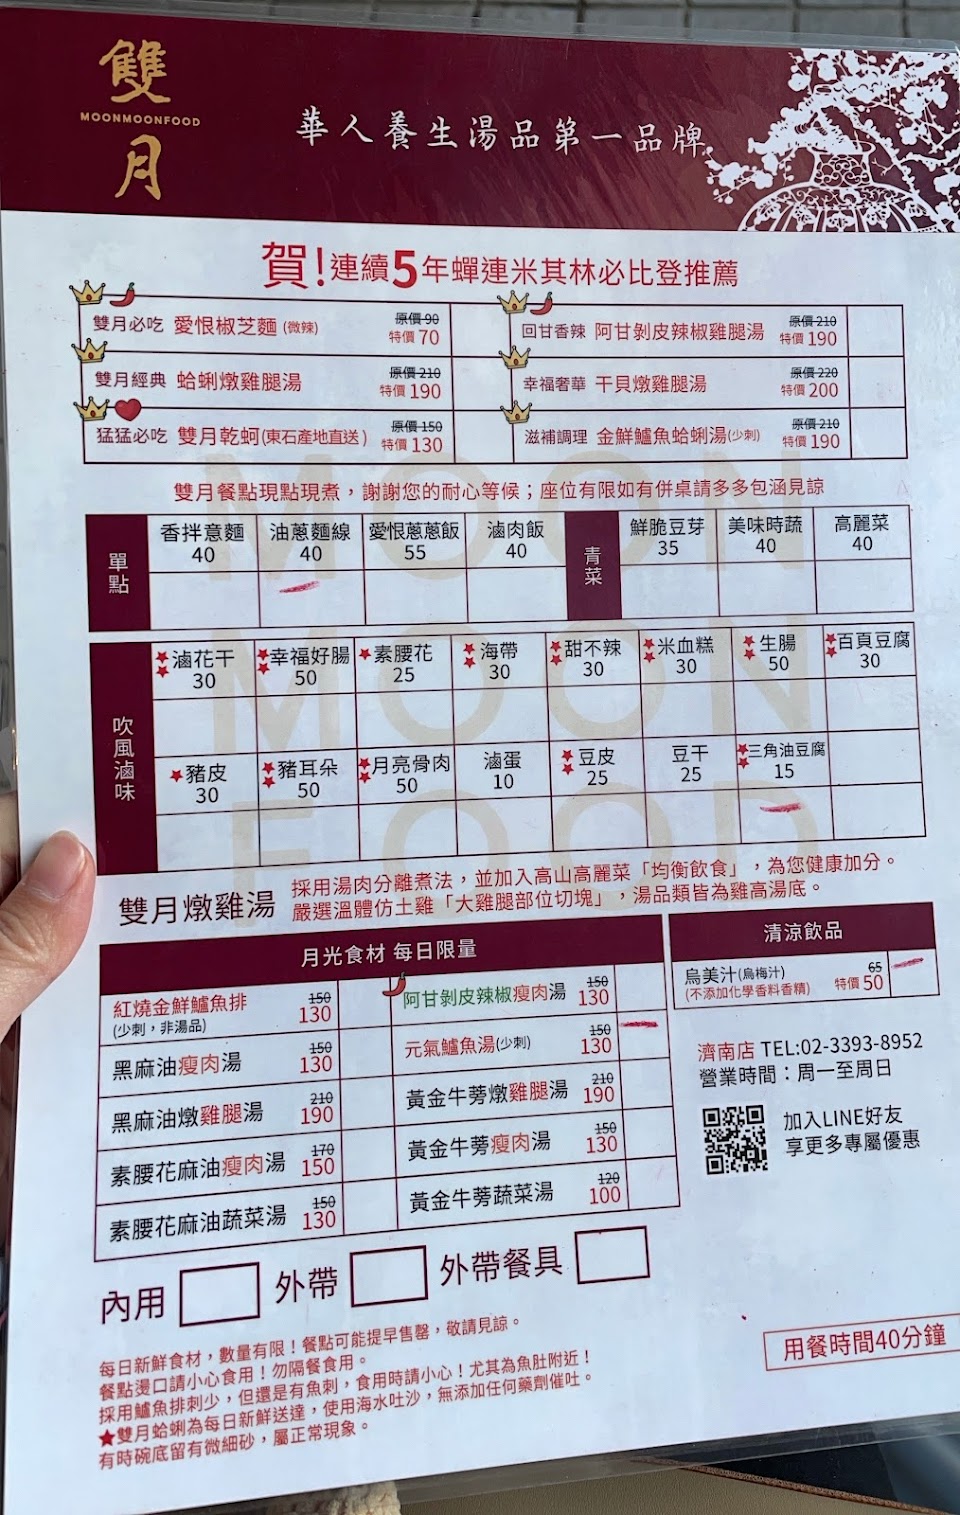 雙月
MOONMOONFOOD
華人養生湯品第一品牌
賀!連續5年蟬連米其林必比登推薦
雙月必吃 愛恨椒芝麵 (微辣) 原價90 特價70
回甘香辣 阿甘剝皮辣椒雞腿湯 原價210 特價190
雙月經典 蛤蜊燉雞腿湯 原價210 特價190
幸福奢華 干貝燉雞腿湯 原價220 特價200
猛猛必吃 雙月乾蚵(東石產地直送) 原價150 特價130
滋補調理 金鮮鱸魚蛤蜊湯(少刺) 原價210 特價190
雙月餐點現點現煮，謝謝您的耐心等候；座位有限如有併桌請多多包涵見諒
單點
香拌意麵 40
油蔥麵線 40
愛恨蔥蔥飯 55
滷肉飯 40
青菜
鮮脆豆芽 35
美味時蔬 40
高麗菜 40
吹風滷味
★★滷花干 30
★★幸福好腸 50
★素腰花 25
★★海帶 30
★★甜不辣 30
★★米血糕 30
★★生腸 50
★★百頁豆腐 30
★豬皮 30
★★豬耳朵 50
★★月亮骨肉 50
滷蛋 10
★★豆皮 25
豆干 25
★★三角油豆腐 15
MOON
MOON
FOOD
雙月燉雞湯
採用湯肉分離煮法，並加入高山高麗菜「均衡飲食」，為您健康加分。
嚴選溫體仿土雞「大雞腿部位切塊」，湯品類皆為雞高湯底。
月光食材 每日限量
紅燒金鮮鱸魚排 (少刺，非湯品) 150 130
阿甘剝皮辣椒瘦肉湯 150 130
黑麻油瘦肉湯 150 130
元氣鱸魚湯(少刺) 150 130
黑麻油燉雞腿湯 210 190
黃金牛蒡燉雞腿湯 210 190
素腰花麻油瘦肉湯 170 150
黃金牛蒡瘦肉湯 150 130
素腰花麻油蔬菜湯 150 130
黃金牛蒡蔬菜湯 120 100
清涼飲品
烏美汁(烏梅汁) 65
(不添加化學香料香精) 特價50
濟南店 TEL:02-3393-8952
營業時間：周一至周日
加入LINE好友
享更多專屬優惠
內用
外帶
外帶餐具
用餐時間40分鐘
每日新鮮食材，數量有限！餐點可能提早售罄，敬請見諒。
餐點燙口請小心食用！勿隔餐食用。
採用鱸魚排刺少，但還是有魚刺，食用時請小心！尤其為魚肚附近！
★雙月蛤蜊為每日新鮮送達，使用海水吐沙，無添加任何藥劑催吐。
有時碗底留有微細砂，屬正常現象。